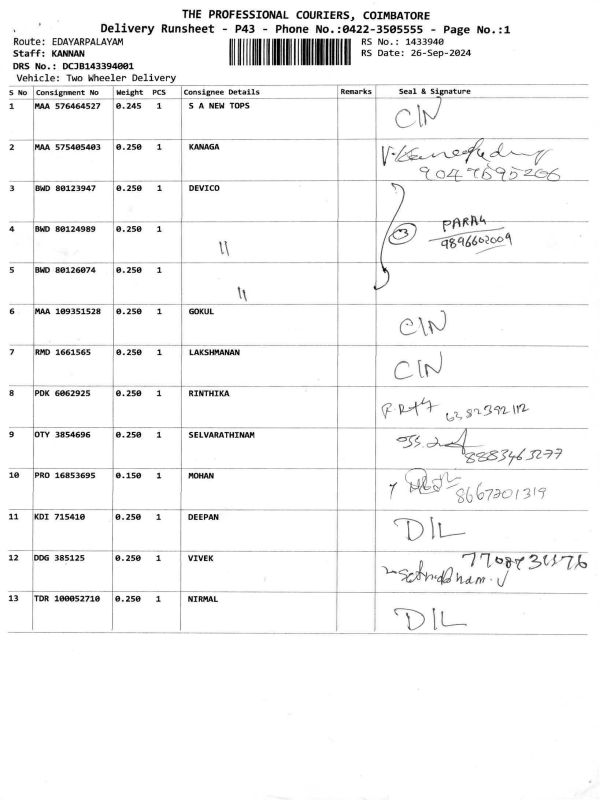 THE PROFESSIONAL COURIERS, COIMBATORE
Delivery Runsheet - P43 - Phone No.:0422-3505555 - Page No.:1
Route: EDAYARPALAYAM RS No.: 1433940
Staff: KANNAN RS Date: 26-Sep-2024
DRS No.: DCJB143394001
Vehicle: Two Wheeler Delivery
S No Consignment No Weight PCS Consignee Details Remarks Seal & Signature
1 MAA 576464527 0.245 1 S A NEW TOPS CIN
2 MAA 575405403 0.250 1 KANAGA
9047695206
3 BWD 80123947 0.250 1 DEVICO
4 BWD 80124989 0.250 1 〃 PARAG
9896602009
5 BWD 80126074 0.250 1 〃
6 MAA 109351528 0.250 1 GOKUL CIN
7 RMD 1661565 0.250 1 LAKSHMANAN CIN
8 PDK 6062925 0.250 1 RINTHIKA
9 OTY 3854696 0.250 1 SELVARATHINAM
8883463277
10 PRO 16853695 0.150 1 MOHAN 8667201319
11 KDI 715410 0.250 1 DEEPAN DIL
12 DDG 385125 0.250 1 VIVEK
13 TDR 100052710 0.250 1 NIRMAL DIL